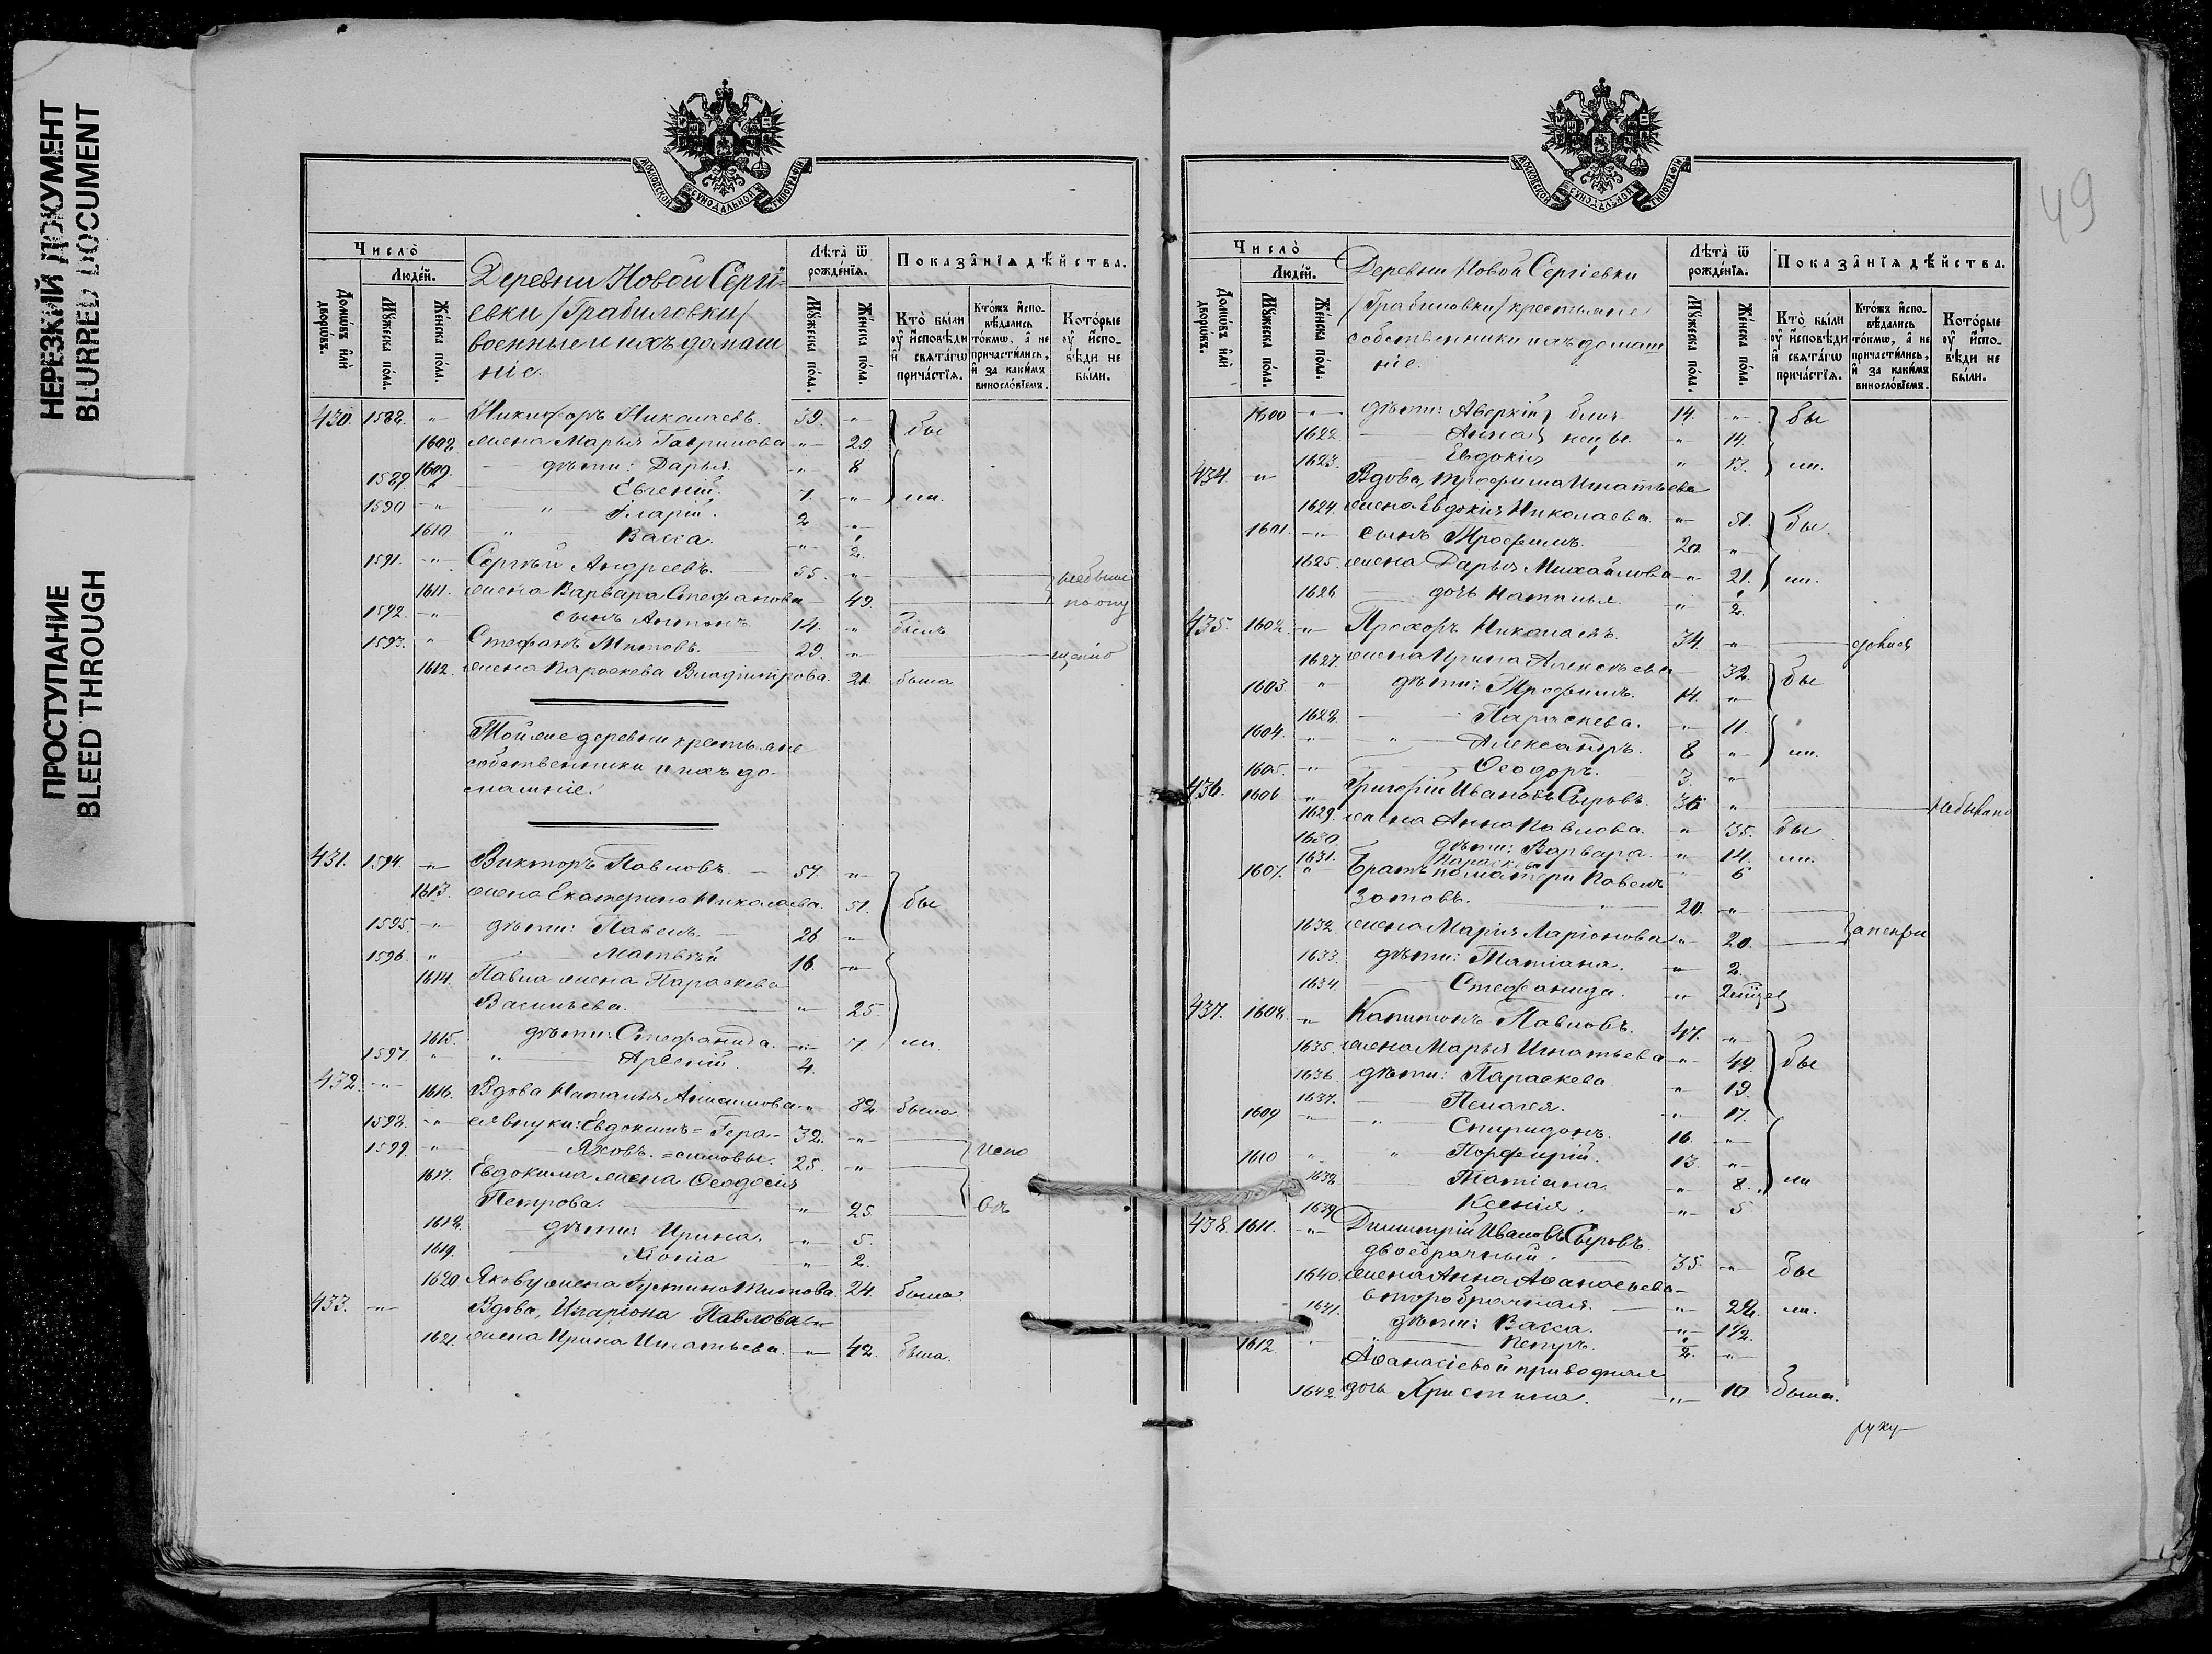 НЕРЕЗКИЙ ДОКУМЕНТ
BLURRED DOCUMENT
ПРОСТУПАНИЕ
BLEED THROUGH
МОСКОВСКОЙ СѴНОДАЛЬНОЙ ТИПОГРАФІИ
Число̀
Люде́й.
Домѡ́въ и҆лѝ дворѡ́въ.
Мꙋ́жеска по́ла.
Же́нска по́ла.
Деревни Новой Сергі-
евки /Грабиловки/
военные и ихъ домаш
ніе.
Лѣта̀ ѿ рожденїѧ.
Мꙋ́жеска по́ла.
Же́нска по́ла.
Показа̑нїѧ дѣ́йства.
Кто̀ были ᲂу҆ и҆́сповѣди и҆ свѧта́гѡ прича́стїѧ.
Кто́жъ и҆спо- вѣ́дались то́кмѡ, а҆ не причасти́лись, и҆ за каки́мъ винослѡ́вїемъ.
Кото́рые ᲂу҆ и҆спо- вѣ́ди не бы́ли.
430. 1588. " Никифоръ Николаевъ. 39. " бы
1608. жена Марья Гаврилова " 29.
1609. дѣти: Дарья. " 8
1589. " Евгеній. 7. " ли.
1590 " " Иларій. 2 "
1610 " Васса. " 1/2.
1591. " Сергѣй Андреевъ. 55. "
1611. жена Варвара Стефанова 49.
1592. " сынъ Антонъ 14. " былъ
1593. " Стефанъ Титовъ. 29. "
1612. жена Параскева Владимірова. 21. была
Тойже деревни крестьяне
собственники и ихъ до-
машніе.
431. 1594. " Викторъ Павловъ. 57. "
1613. жена Екатерина Николаева. 51. бы
1595. " дѣти: Павелъ 26 "
1596. " Матвѣй 16. "
1614. Павла жена Параскева
Васильева. " 25.
1615. дѣти: Стефанида. " 7. ли.
1597. " " Арсеній. 4.
432. " 1616. Вдова Наталья " 82 была.
1598. " ея внуки: Евдокимъ = Гера- 32. "
1599. " Яковъ. = симовы. 25. " испо
1617. Евдокима жена Ѳеодосія
Петрова. " 25
1618. дѣти: Ирина. " 5.
1619. Хіонія " 2.
1620 Якову жена Іустина Титова. 24. была
433. " Вдова, Иларіона Павлова "
1621. жена Ирина Игнатьева. " 42. была.
49
МОСКОВСКОЙ СѴНОДАЛЬНОЙ ТИПОГРАФІИ
Число̀
Люде́й.
Домѡ́въ и҆лѝ дворѡ́въ.
Мꙋ́жеска по́ла.
Же́нска по́ла.
Деревни Новой Сергіевки
/Грабиловки/ крестьяне
собственники и ихъ домаш
ніе.
Лѣта̀ ѿ рожденїѧ.
Мꙋ́жеска по́ла.
Же́нска по́ла.
Показа̑нїѧ дѣ́йства.
Кто̀ были ᲂу҆ и҆́сповѣди и҆ свѧта́гѡ прича́стїѧ.
Кто́жъ и҆спо- вѣ́дались то́кмѡ, а҆ не причасти́лись, и҆ за каки́мъ винослѡ́вїемъ.
Кото́рые ᲂу҆ и҆спо- вѣ́ди не бы́ли.
1600 " дѣти: Аверкій } близ 14. " бы
1622. Анна } нецы. " 14.
1623. Евдокія " 13. ли.
434. " Вдова, Трофима Игнатьева
1624. жена Евдокія Николаева. " 51. бы.
1601. " сынъ Трофимъ. 20. "
1625. жена Дарья Михайлова " 21. ли.
1626 дочь Наталья. " 1/2.
435. 1602. " Прохоръ Николаевъ. 34. "
1627. жена Ирина Алексѣева 32. бы
1603. " дѣти: Трофимъ. 14. "
1628. Параскева. " 11.
1604. " " Александръ. 8 " ли.
1605. " Ѳеодоръ. 3. "
436. 1606 " Григорій Ивановъ Сыровъ. 36 "
1629. жена Анна Павлова. " 35. бы
1630. дѣти: Варвара. " 14. ли.
1631. Параскева " 6
1607. " Братъ по матери Павелъ
Зотовъ. 20. "
1632. жена Марія Ларіонова " 20.
1633. дѣти: Татіана. " 2.
1634. Стефанида. "
437. 1608. " Капитонъ Павловъ. 47. "
1635. жена Марья Игнатьева " 49. бы
1636. дѣти: Параскева " 19.
1637. Пелагея. " 17.
1609 " " Спиридонъ. 16. "
1610 " " Порфирій. 13. "
1638. Татіана " 8. ли
1639. Ксенія. " 5
438. 1611. " Димитрій Ивановъ Сыровъ
двоебрачный. 35. " бы
1640. жена Анна Аѳанасьева
второбрачная. " 22. ли.
1641. дѣти: Васса. " 1 1/2.
1612. " " Петръ. 1/2. "
Аѳанасіевой приводная
1642. дочь Христина. " 10 была.
руку